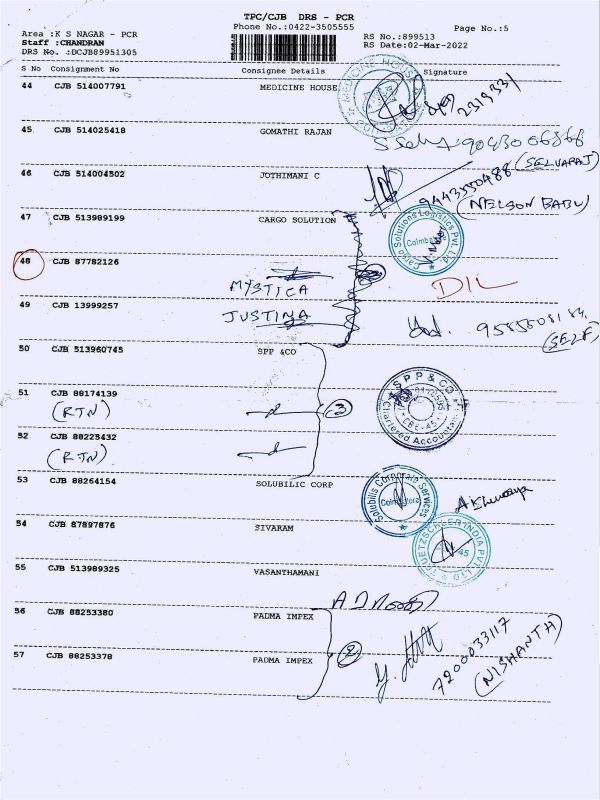 TPC/CJB DRS - PCR
Area :K S NAGAR - PCR Phone No.:0422-3505555 Page No.:5
Staff :CHANDRAN RS No.:899513
DRS No. :DCJB89951305 RS Date:02-Mar-2022
S No Consignment No Consignee Details Signature
44 CJB 514007791 MEDICINE HOUSE
2319331
45 CJB 514025418 GOMATHI RAJAN
(SELVARAJ)
46 CJB 514004502 JOTHIMANI C
9443550488
(NELSON BABU)
47 CJB 513989199 CARGO SOLUTION
Cargo Solutions Logistics Pvt. Ltd.
48 CJB 87782126
MYSTICA DIL
49 CJB 13999257 JUSTINA
(SELF)
50 CJB 513960745 SPP &CO
SPP & CO
Chartered Accountants
51 CJB 88174139
(RTN) 3
52 CJB 88225432
(RTN)
53 CJB 88264154 SOLUBILIC CORP
Solubilis Corporate Services
Coimbatore
54 CJB 87897876 SIVARAM
55 CJB 513989325 VASANTHAMANI
56 CJB 88253380 PADMA IMPEX
2 7200033117
57 CJB 88253378 PADMA IMPEX (NISHANTH)